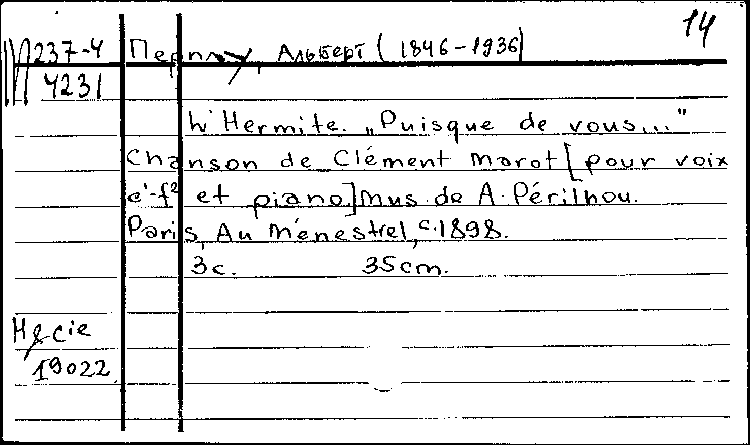 14
237-4 Перилу, Альберт (1846-1936)
4231
L'Hermite. „Puisque de vous..."
Chanson de Clément Marot [pour voix
e¹-f² et piano] Mus. de A. Périlhou.
Paris, Au Ménestrel, c.1898.
3 c. 35 cm.
H & cie
19022